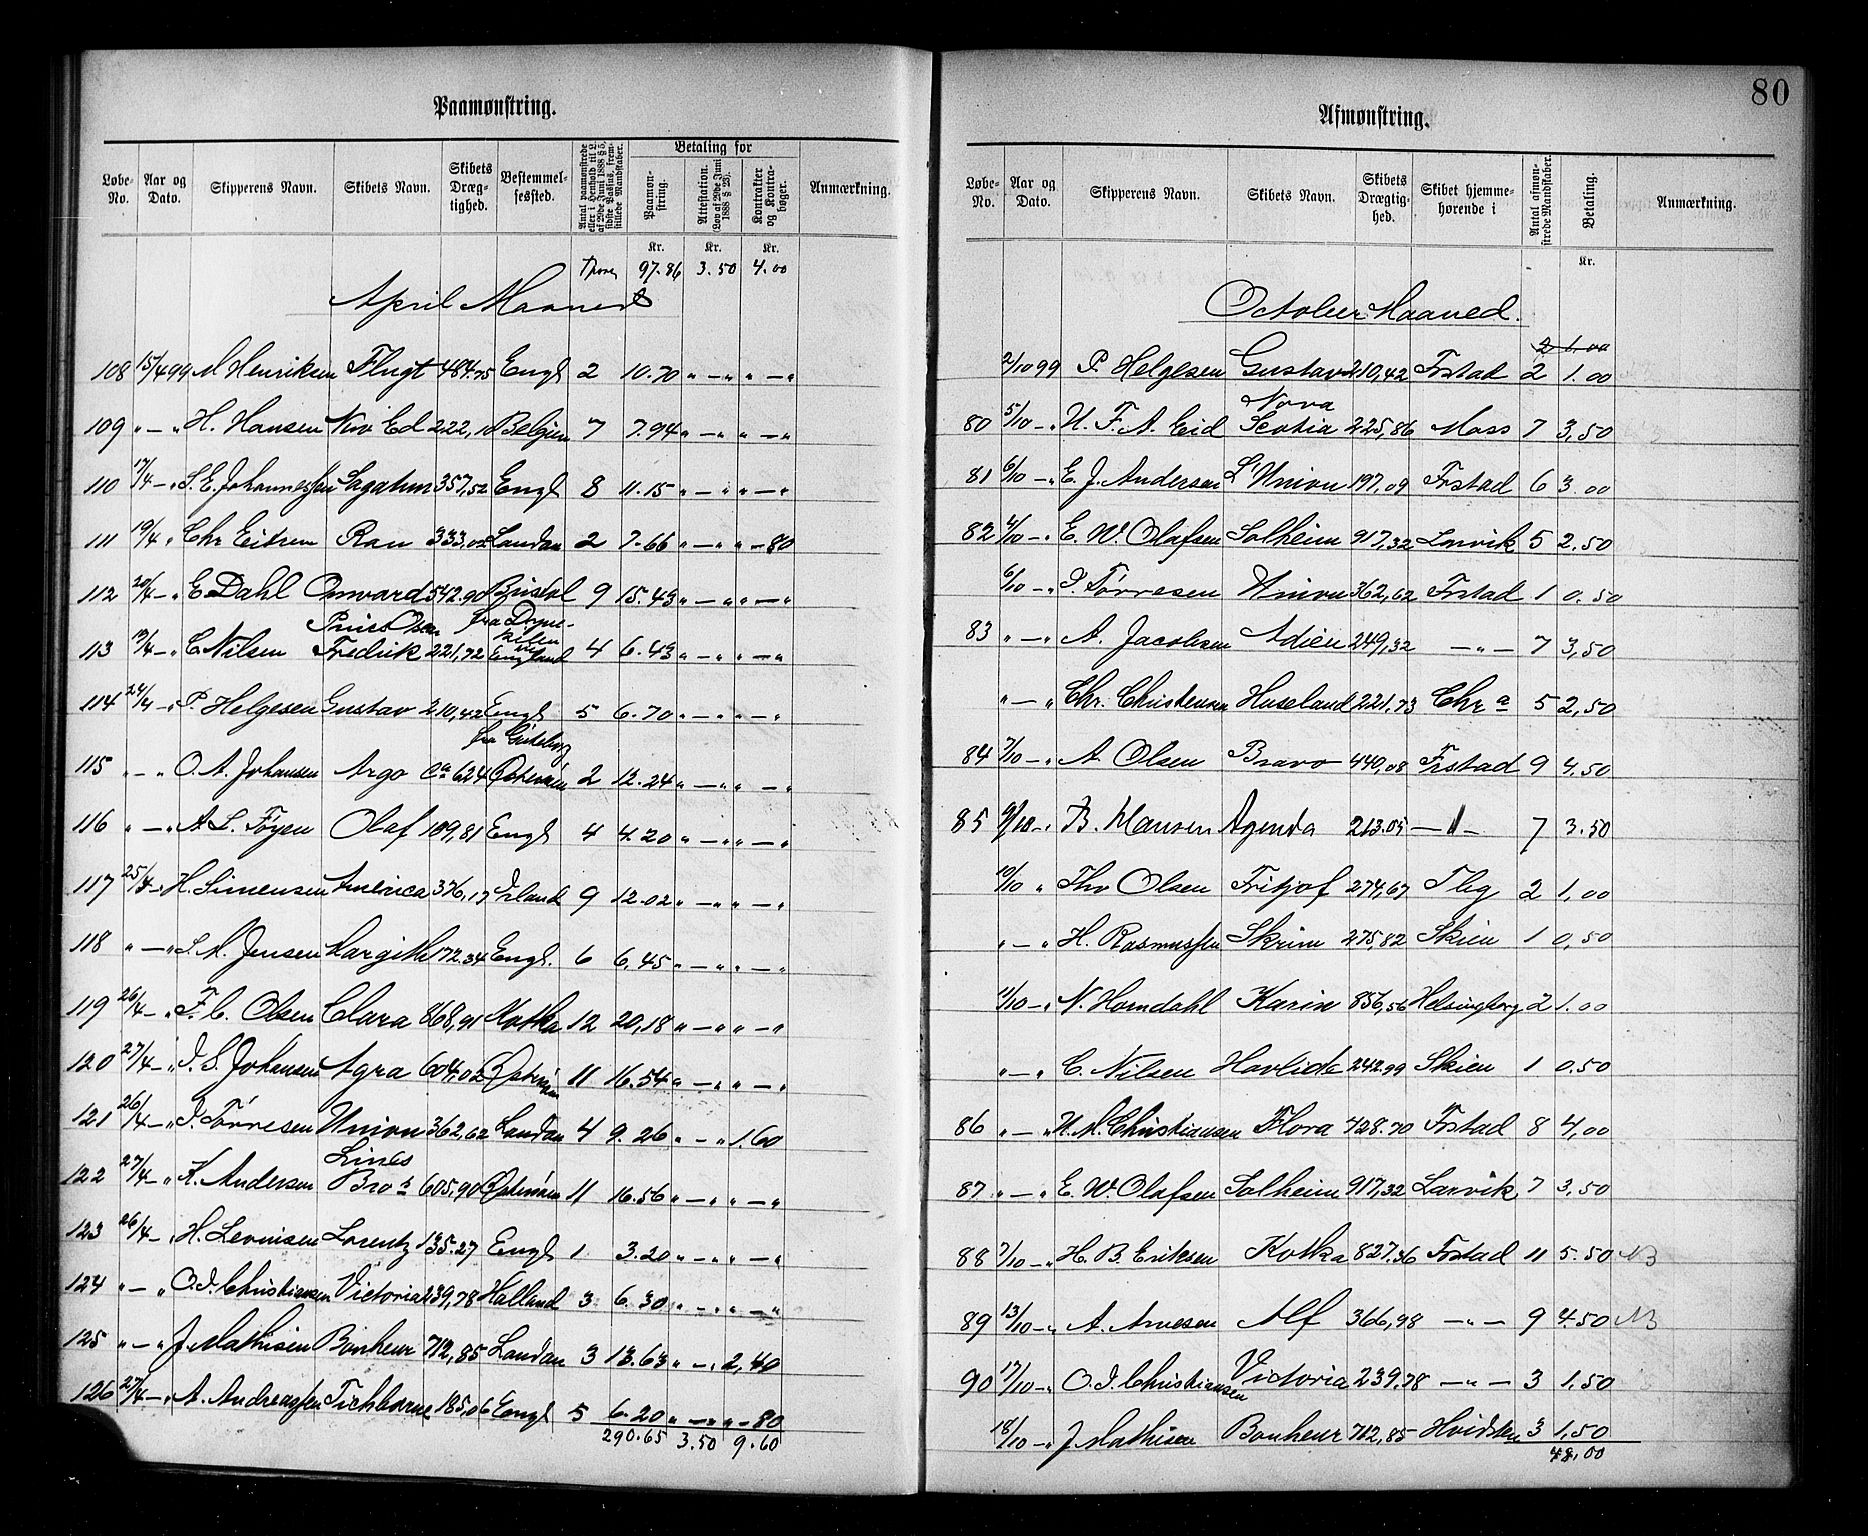 80
Paamønstring.
Løbe-No. Aar og Dato. Skipperens Navn. Skibets Navn. Skibets Dræg-tighed. Bestemmel-sessted. Antal paamønstrede eller i Henhold til L. af 29de Juni 1888 § 5, sidste Passus, frem-stillede Mandskaber. Betaling for Paamøn-string. Attestation. (Lov af 29de Juni 1888 § 23). Kontrakter og Kontra-bøger. Anmærkning.
Kr. Kr. Kr.
97.86 3.50 4.00
April Maaned
108 15/4 99 M Henriksen Flugt 484.75 Engl 2 10.70 " — " " — "
109 " — " H. Hansen Niv Ed 222,10 Belgien 7 7.94 " — " " — "
110 17/4 — " S. E. Johannessen Sagatun 357,52 Engl 8 11.15 " — " " — "
111 19/4 " Chr Eitrem Ran 333.02 London 2 7.66 " — " " — 80
112 20/4 — " E Dahl Onward 542.90 Bristol 9 15.43 " — " " — "
113 13/4 — " C. Nilsen Prins Oscar Fredrik 221,72 fra Dyne-kilen til England 4 6.43 " — " " — "
114 24/4 — " P. Helgesen Gustav 210,42 Engl 5 6.70 " — " " — "
115 " — " O. A. Johansen Argo ca 624 fra Gøteborg Østersøen 2 12.24 " — " " — "
116 " — " A L. Føyen Olaf 109,81 Engl 4 4.20 " — " " — "
117 25/4 — " H. Simensen America 376,17 Irland 9 12.02 " — " " — "
118 " — " S. M. Jensen Margith 172.34 Engl. 6 6.45 " — " " — "
119 26/4 — " F. C. Olsen Clara 868,91 Kotka 12 20,18 " — " " — "
120 27/4 — " I. S. Johansen Agra 604,02 Østersøen 11 16.54 " — " " — "
121 26/4 — " I. Tørresen Union 362,62 London 4 9.26 " — " 1.60
122 27/4 — " K. Andersen Lines Bros 605,90 Østersøen 11 16.56 " — " " — "
123 26/4 — " H. Levinsen Lorentz 135.27 Engl 1 3.20 " — " " — "
124 " — " O. I. Christiansen Victoria 239,78 Holland 3 6.30 " — " " — "
125 " — " J. Mathisen Bonheur 712,85 London 3 13.63 " — " 2,40
126 27/4 — " A. Andreassen Tichborne 185,06 Engl 5 6.20 " — " " — 80
290.65 3.50 9.60
Afmønstring.
Løbe-No. Aar og Dato. Skipperens Navn. Skibets Navn. Skibets Drægtig-hed. Skibet hjemme-hørende i Antal afmøn-strede Mandskaber. Betaling. Anmærkning.
Kr.
October Maaned.
2 1.00
2/10 99 P Helgesen Gustav 210,42 Frstad 2 1.00
80 5/10 — " U. F. A. Eid Nova Scotia 225,86 Moss 7 3,50
81 6/10 — " E. J. Andersen L'Union 197,09 Frstad 6 3.00
82 4/10 — " E. W. Olafsen Solheim 917,32 Larvik 5 2.50
6/10 — " I. Tørresen Union 362,62 Frstad 1 0.50
83 " — " A. Jacobsen Adieu 249,32 — " — 7 3,50
" — " Chr. Christensen Huseland 221.73 Chra 5 2,50
84 7/10 — " A. Olsen Bravo 440,08 Frstad 9 4.50
85 9/10 — " B. Hansen Agenda 213.05 — " — 7 3.50
10/10 " Thv Olsen Fritjof 274,67 Tbg 2 1,00
" — " H. Rasmussen Skrim 275,82 Skien 1 0,50
11/10 — " N. Horndahl Karin 856,56 Helsingborg 2 1.00
" — " C. Nilsen Havlide 242.99 Skien 1 0.50
86 " — " U. M. Christiansen Flora 428.70 Frstad 8 4,00
87 " — " E. W. Olafsen Solheim 917,32 Larvik 7 3,50
88 7/10 — " H. B. Eriksen Kotka 827.36 Frstad 11 5.50 NB
89 13/10 — " A. Arvesen Alf 366,98 — " — 9 4.50 NB
90 17/10 — " O. I. Christiansen Victoria 239.78 — " — 3 1,50
18/10 — " J. Mathisen Bonheur 712,85 Hvidsten 3 1,50
48,00